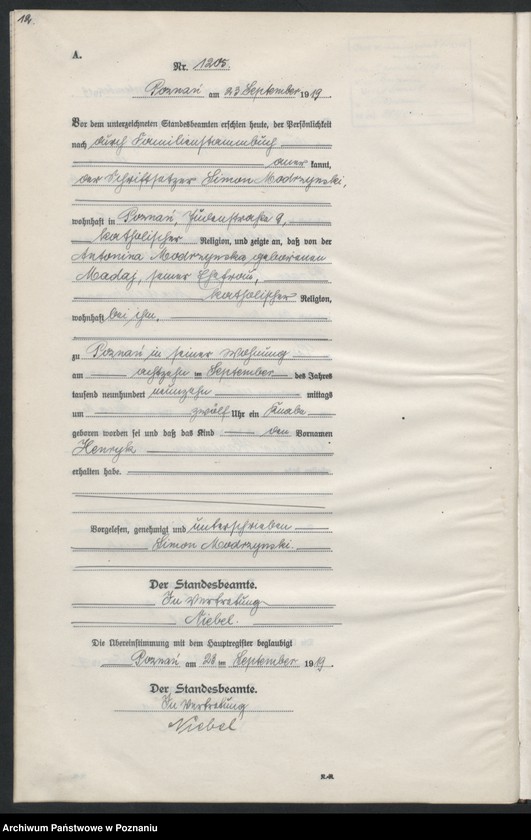 A.
Nr. 1205.
Poznań am 23 September 1919.
Vor dem unterzeichneten Standesbeamten erschien heute, der Persönlichkeit
nach durch Familienstammbuch
anerkannt,
der Schriftsetzer Simon Modrzynski,
wohnhaft in Poznań, Judenstraße 9,
katholischer Religion, und zeigte an, daß von der
Antonina Modrzynska geborenen
Madaj, seiner Ehefrau,
katholischer Religion,
wohnhaft bei ihm,
zu Poznań in seiner Wohnung
am achtzehn ten September des Jahres
tausend neunhundert neunzehn mittags
um zwölf Uhr ein Knabe
geboren worden sei und daß das Kind den Vornamen
Henryk
erhalten habe.
Vorgelesen, genehmigt und unterschrieben
Simon Modrzynski.
Der Standesbeamte.
In Vertretung
Niebel.
Die Übereinstimmung mit dem Hauptregister beglaubigt
Poznań am ten September 1919.
Der Standesbeamte.
In Vertretung
Niebel
Archiwum Państwowe w Poznaniu